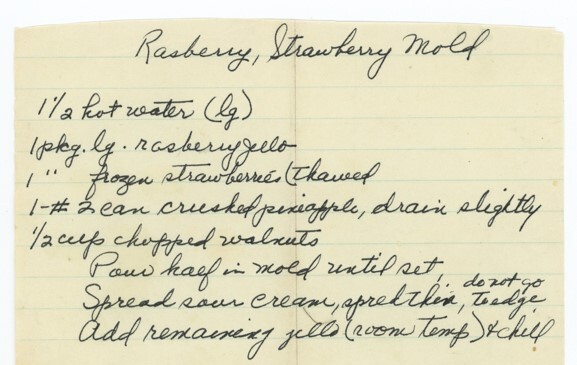 Rasberry, Strawberry Mold
1 1/2 hot water (lg)
1 pkg. lg. rasberry jello
1 " frozen strawberries (thawed
1-# 2 can crushed pineapple, drain slightly
1/2 cup chopped walnuts
Pour half in mold until set,
Spread sour cream, spred thin, do not go to edge
Add remaining jello (room temp) & chill